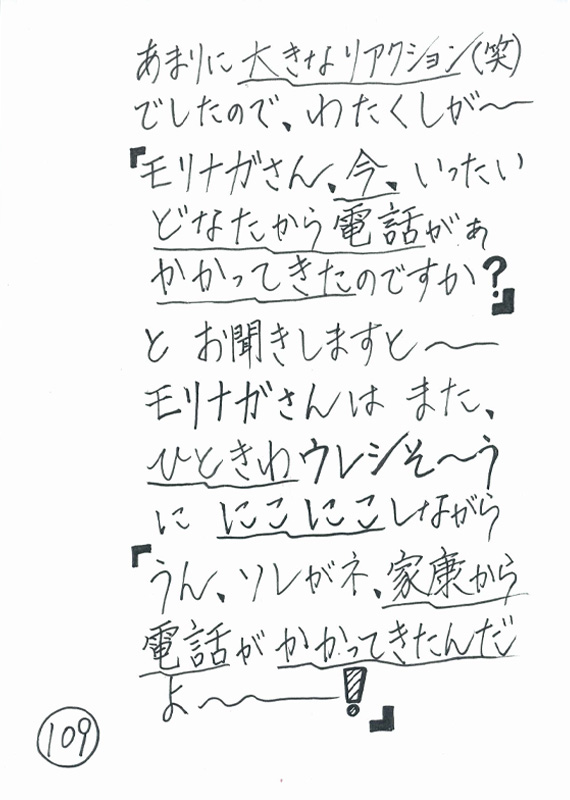 あまりに大きなリアクション(笑)
でしたので、わたくしが〜
『モリナガさん、今、いったい
どなたから電話がぁ
かかってきたのですか?』
と お聞きしますと〜
モリナガさんは また、
ひときわウレシそ〜う
に にこにこしながら
『うん、ソレがネ、家康から
電話が かかってきたんだ
よ〜!』
109